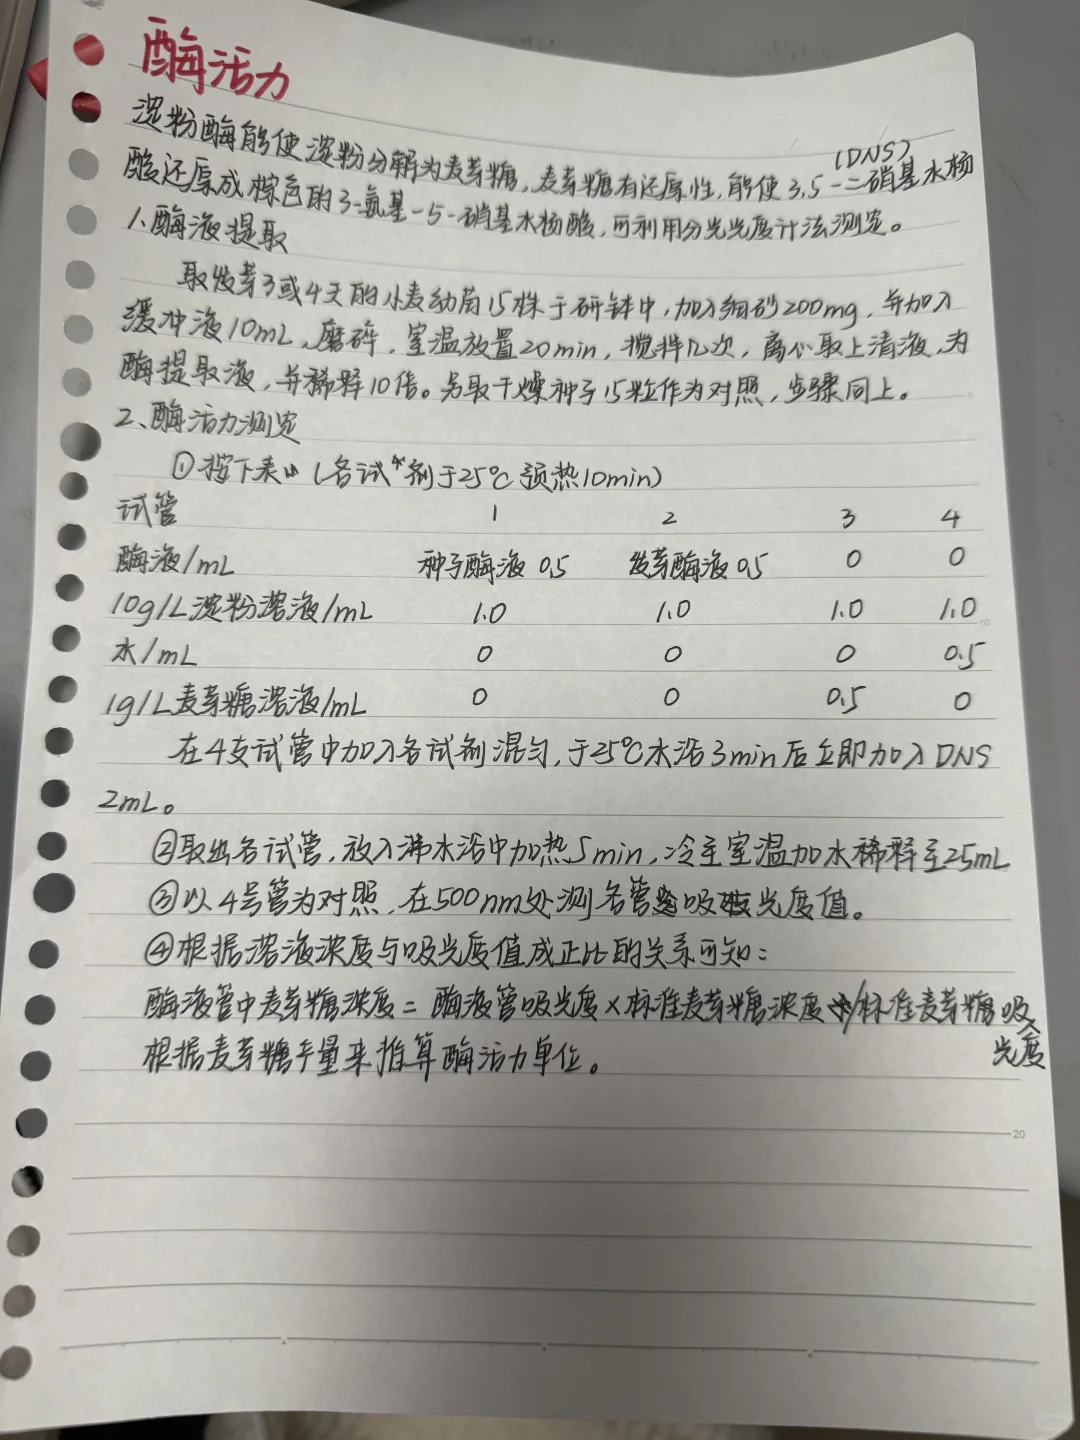 酶活力
淀粉酶能使淀粉分解为麦芽糖,麦芽糖有还原性,能使3,5-二硝基水杨
(DNS)
酸还原成棕色的3-氨基-5-硝基水杨酸,可利用分光光度计法测定。
1、酶液提取
取发芽3或4天的小麦幼苗15株于研钵中,加入细砂200mg,并加入
缓冲液10mL,磨碎,室温放置20min,搅拌几次,离心取上清液,为
酶提取液,并稀释10倍。另取干燥种子15粒作为对照,步骤同上。
2、酶活力测定
①按下表 (各试剂于25℃预热10min)
试管 1 2 3 4
酶液/mL 种子酶液 0.5 发芽酶液 0.5 0 0
10g/L淀粉溶液/mL 1.0 1.0 1.0 1.0
水/mL 0 0 0 0.5
1g/L麦芽糖溶液/mL 0 0 0.5 0
在4支试管中加入各试剂混匀,于25℃水浴3min后立即加入DNS
2mL。
②取出各试管,放入沸水浴中加热5min,冷至室温加水稀释至25mL
③以4号管为对照,在500nm处测各管吸光度值。
④根据溶液浓度与吸光度值成正比的关系可知:
酶液管中麦芽糖浓度=酶液管吸光度×标准麦芽糖浓度/标准麦芽糖吸
光度
根据麦芽糖产量来推算酶活力单位。
10
20